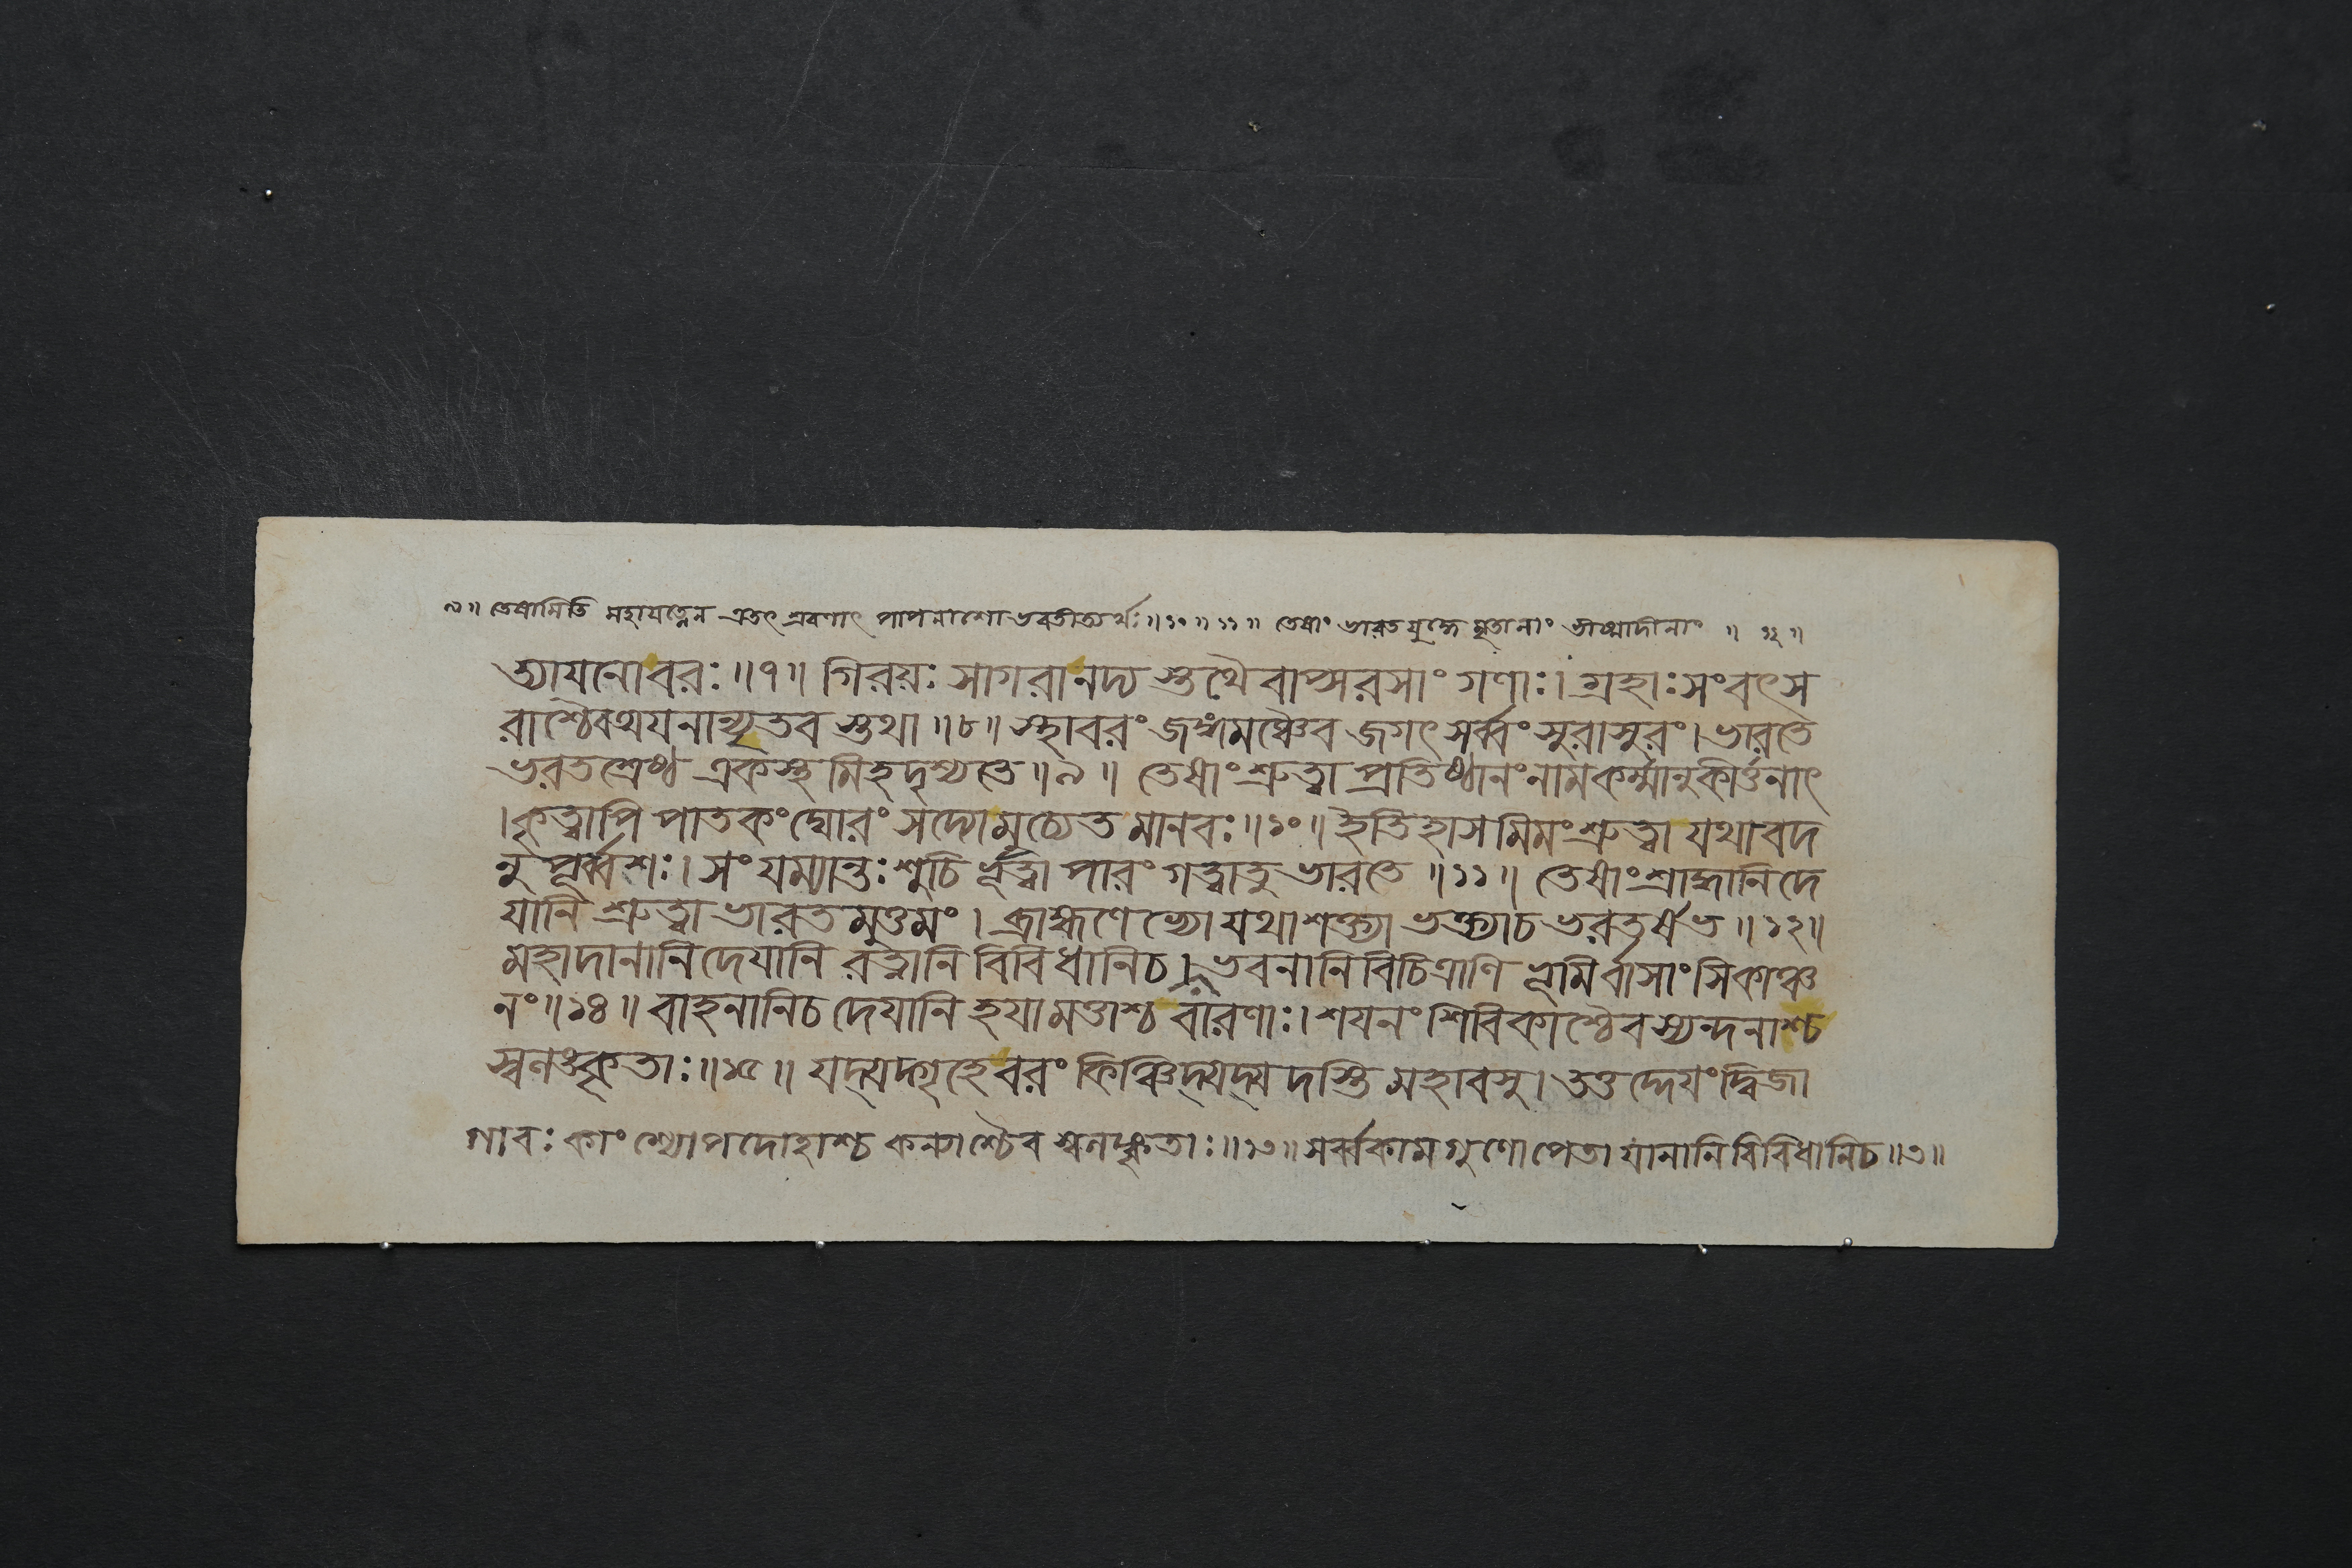 ৯॥ তেষামিতি মহাযত্নেন এতৎ শ্রবণাৎ পাপনাশো ভবতীত্যর্থঃ॥১০॥১১॥ তেষাং ভারতযুদ্ধে মৃতানাং ভীষ্মাদীনাং ॥ ১২॥
ত্যাযনোবরঃ॥৭॥ গিরয়ঃ সাগরানদ্য স্তথৈবাপ্সরসাং গণাঃ। গ্রহাঃ সংবৎস
রাশ্চৈবঅযনান্যৃতব স্তথা॥৮॥ স্থাবরং জঙ্গমঞ্চৈব জগৎ সর্ব্বং সুরাসুরং। ভারতে
ভরতশ্রেষ্ঠ একস্থ মিহদৃশ্যতে॥৯॥ তেষাং শ্রুত্বা প্রতিষ্ঠানং নামকর্ম্মানুকীর্ত্তনাৎ
।কৃত্বাপি পাতকং ঘোরং সদ্যোমুচ্যেত মানবঃ॥১০॥ ইতিহাসমিমং শ্রুত্বা যথাবদ
নু পূর্ব্বশঃ। সংযম্যান্তঃ শুচি র্ভূত্বা পারং গত্বাতু ভারতে॥১১॥ তেষাং শ্রাদ্ধানিদে
যানি শ্রুত্বা ভারতমুত্তমং। ব্রাহ্মণেভ্যো যথাশক্ত্যা ভক্ত্যাচ ভরতর্ষভ॥১২॥
মহাদানানিদেযানি রত্নানি বিবিধানিচ। ভবনানি বিচিত্রাণি ভূমির্বাসাংসিকাঞ্চ
নং॥১৪॥ বাহনানিচ দেযানি হযামত্তাশ্চ বারণাঃ। শযনং শিবিকাশ্চৈব স্যন্দনাশ্চ
স্বলঙ্কৃতাঃ॥১৫॥ যদ্যদ্গৃহেবরং কিঞ্চিদ্যদ্যদস্তি মহাবসু। তত্তদ্দেযং দ্বিজা
গাবঃ কাংশ্যোপদোহাশ্চ কন্যাশ্চৈব স্বলঙ্কৃতাঃ॥১৩॥ সর্ব্বকামগুণোপেতা যানানি বিবিধানিচ॥৩॥